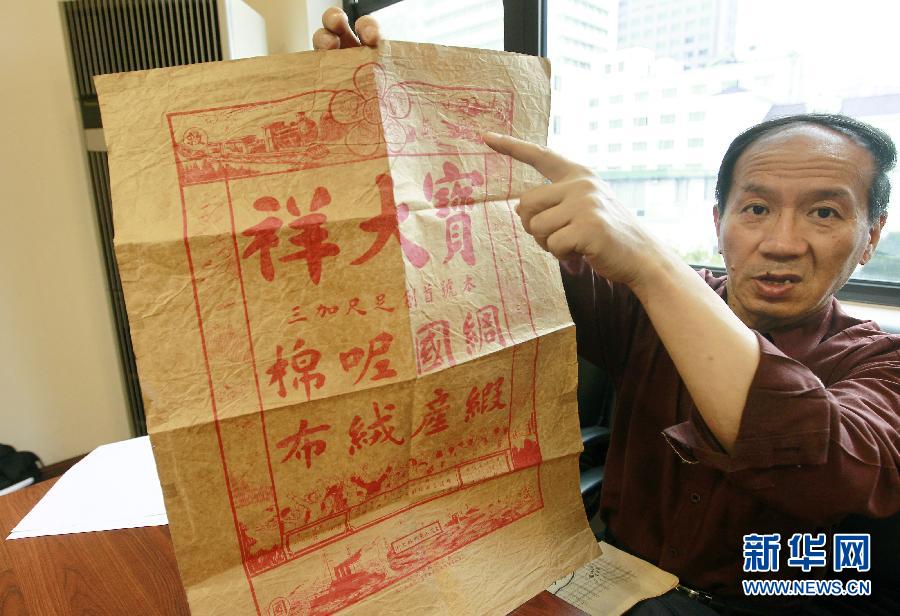 救
寶大祥
本號首創足尺加三
綢緞
國產
呢絨
棉布
國
新华网
WWW.NEWS.CN